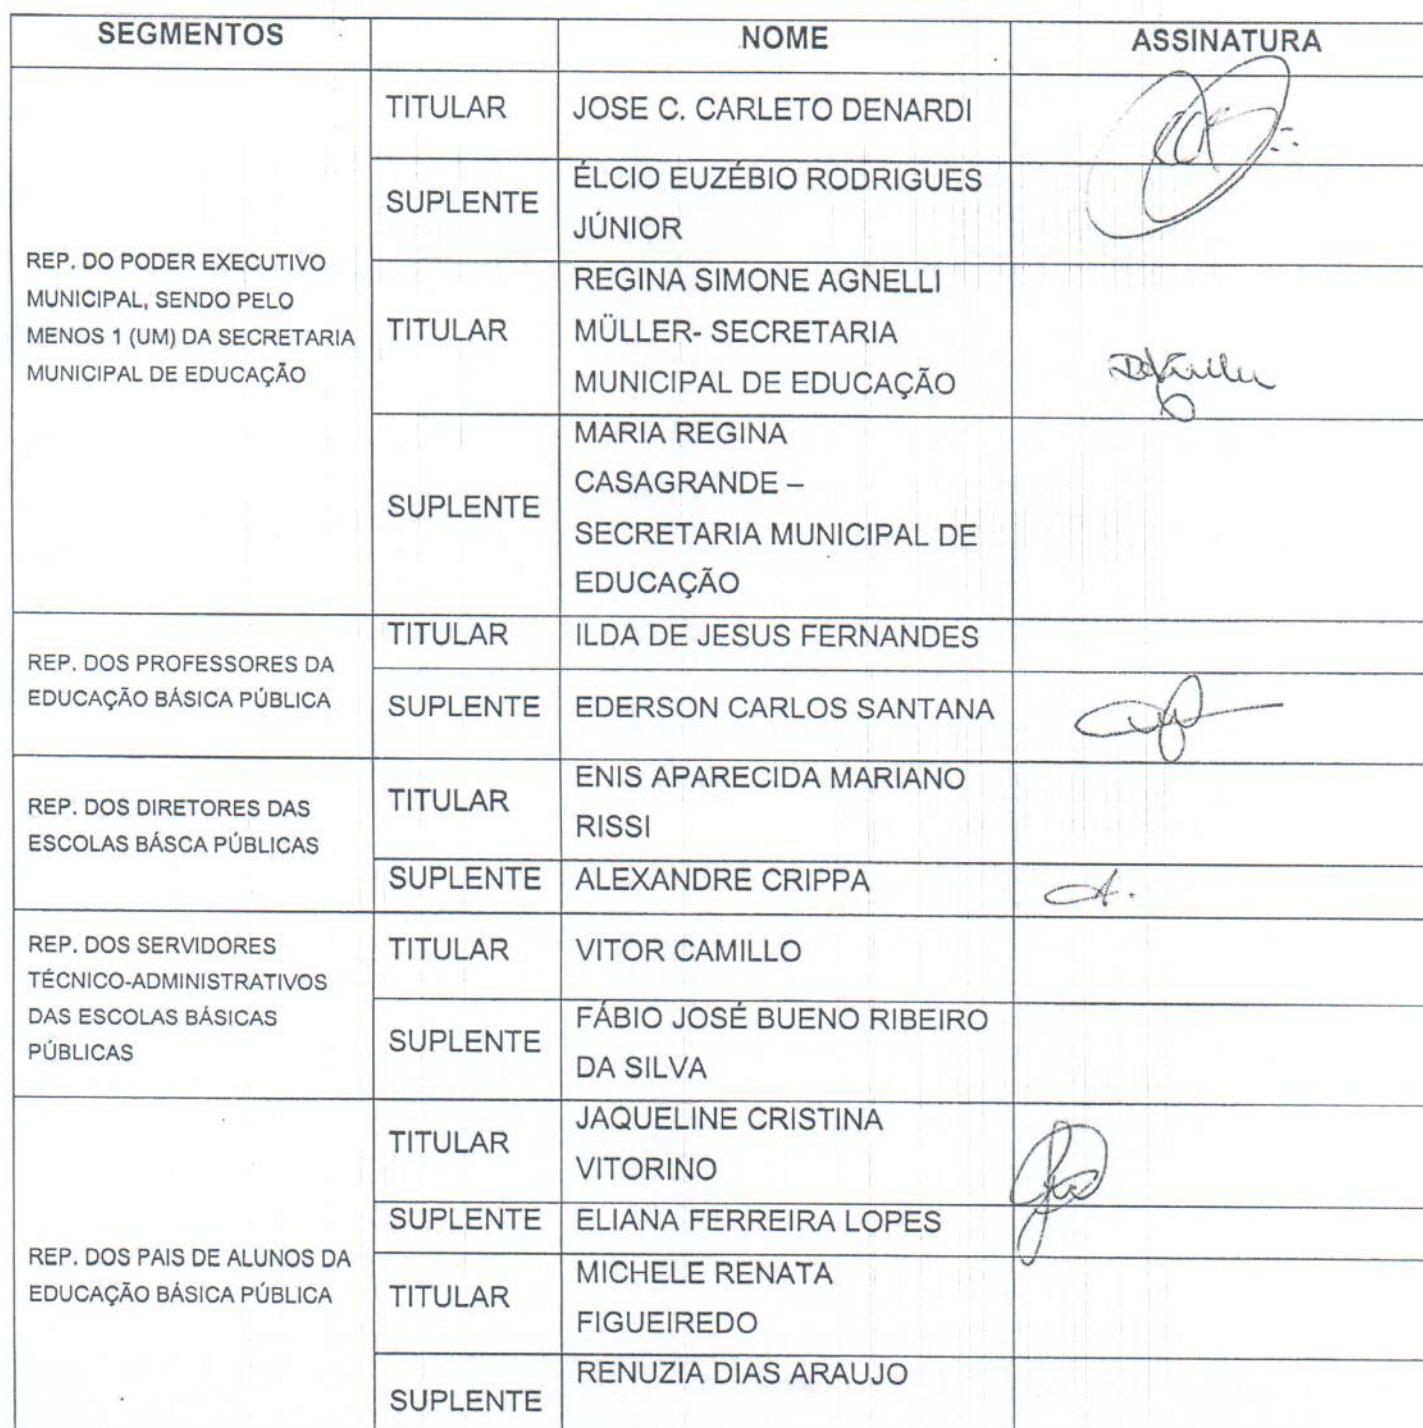 SEGMENTOS NOME ASSINATURA
REP. DO PODER EXECUTIVO
MUNICIPAL, SENDO PELO
MENOS 1 (UM) DA SECRETARIA
MUNICIPAL DE EDUCAÇÃO
TITULAR JOSE C. CARLETO DENARDI
SUPLENTE ÉLCIO EUZÉBIO RODRIGUES
JÚNIOR
TITULAR REGINA SIMONE AGNELLI
MÜLLER- SECRETARIA
MUNICIPAL DE EDUCAÇÃO
SUPLENTE MARIA REGINA
CASAGRANDE –
SECRETARIA MUNICIPAL DE
EDUCAÇÃO
REP. DOS PROFESSORES DA
EDUCAÇÃO BÁSICA PÚBLICA
TITULAR ILDA DE JESUS FERNANDES
SUPLENTE EDERSON CARLOS SANTANA
REP. DOS DIRETORES DAS
ESCOLAS BÁSCA PÚBLICAS
TITULAR ENIS APARECIDA MARIANO
RISSI
SUPLENTE ALEXANDRE CRIPPA
REP. DOS SERVIDORES
TÉCNICO-ADMINISTRATIVOS
DAS ESCOLAS BÁSICAS
PÚBLICAS
TITULAR VITOR CAMILLO
SUPLENTE FÁBIO JOSÉ BUENO RIBEIRO
DA SILVA
REP. DOS PAIS DE ALUNOS DA
EDUCAÇÃO BÁSICA PÚBLICA
TITULAR JAQUELINE CRISTINA
VITORINO
SUPLENTE ELIANA FERREIRA LOPES
TITULAR MICHELE RENATA
FIGUEIREDO
SUPLENTE RENUZIA DIAS ARAUJO